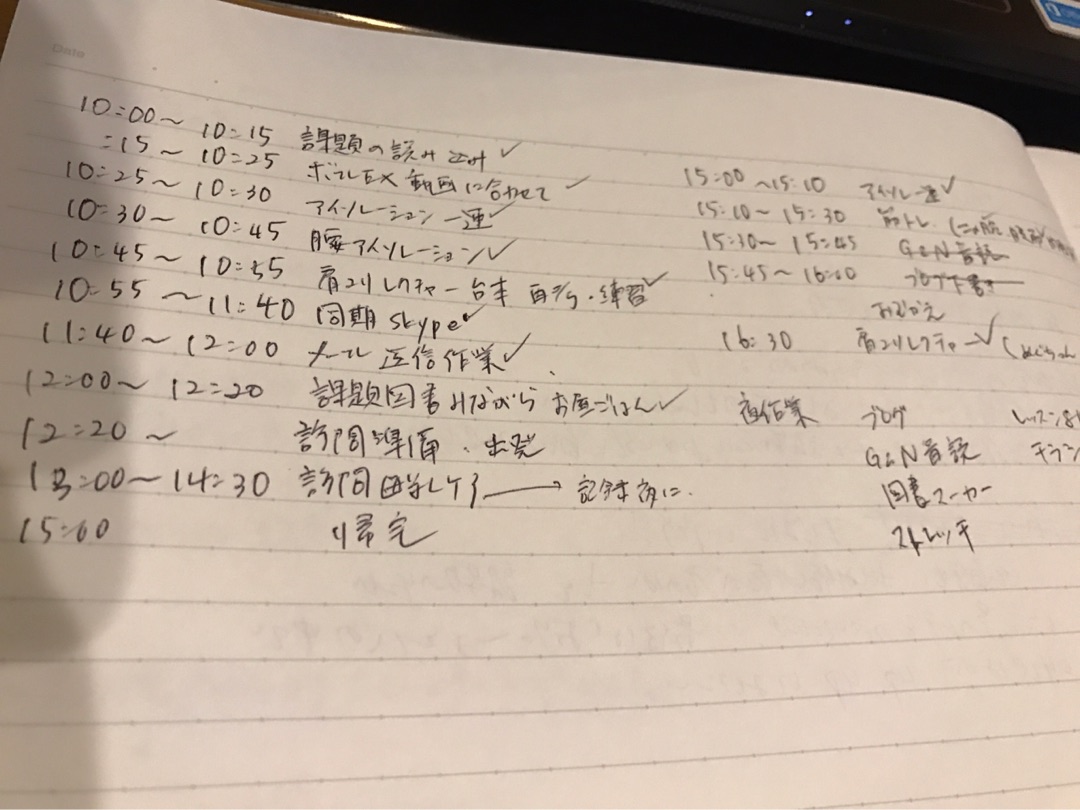 Date
10:00〜10:15 課題の読みこみ ✓
:15〜10:25 ボラEX 動画に合わせて ✓
10:25〜10:30 アイソレーション一連 ✓
10:30〜10:45 腰アイソレーション ✓
10:45〜10:55 肩コリレクチャー台本 練習 ✓
10:55〜11:40 同期skype ✓
11:40〜12:00 メール 返信作業 ✓
12:00〜12:20 課題図書みながら お昼ごはん ✓
12:20〜 訪問準備・出発
13:00〜14:30 訪問 → 記録夜に.
15:00 帰宅
15:00〜15:10 アイソレ一連 ✓
15:10〜15:30 筋トレ
15:30〜15:45 G&N音読
15:45〜16:00 ブログ下書き
おむかえ
16:30 肩コリレクチャー ✓
夜作業 ブログ
G&N音読
図書
ストレッチ